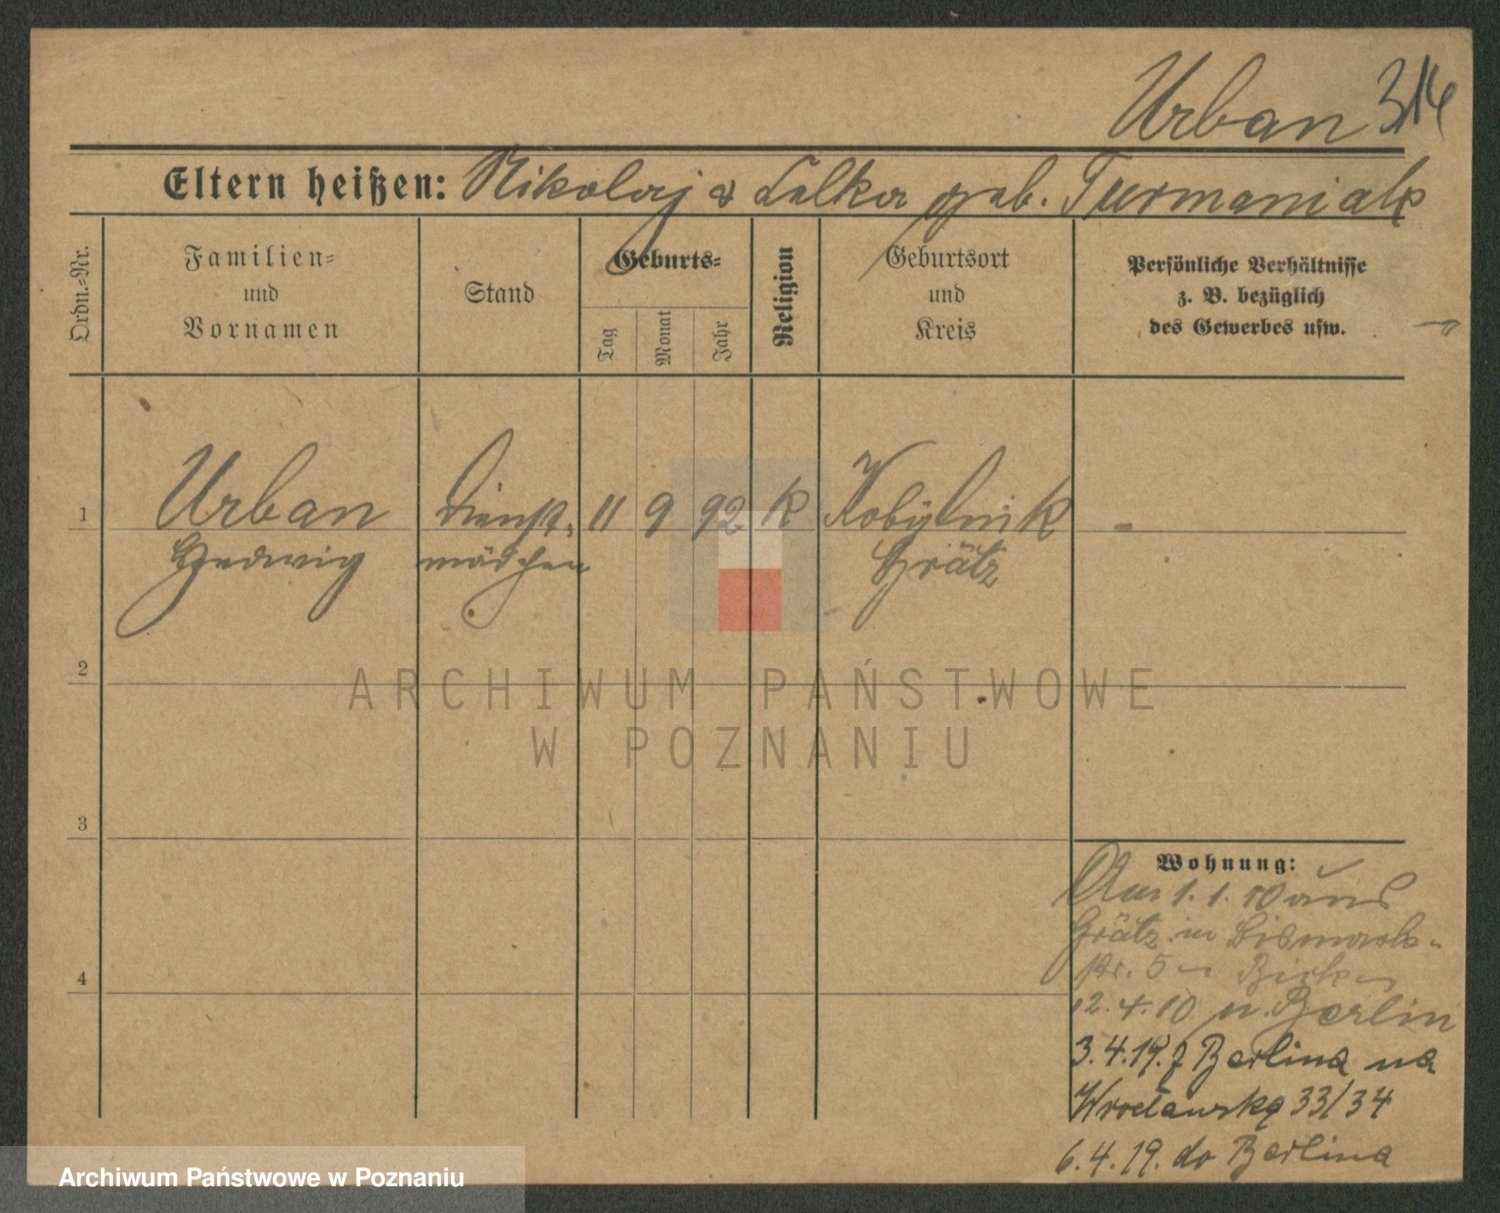 Urban 314
Eltern heißen: Nikolaj & Salka geb. Furmaniak
Ordn.-Nr.
Familien-
und
Vornamen
Stand
Geburts-
Tag
Monat
Jahr
Religion
Geburtsort
und
Kreis
Persönliche Verhältnisse
z. B. bezüglich
des Gewerbes usw.
1
Urban Dienst- 11 9 92 k Kobylnik -
Hedwig mädchen Grätz
2
3
4
Wohnung:
Am 1.1.10 aus
Grätz in Bismark-
str. 5
12.4.10 n. Berlin
3.4.19. z Berlina na
Wrocławską 33/34
6.4.19. do Berlina
ARCHIWUM PAŃSTWOWE
W POZNANIU
Archiwum Państwowe w Poznaniu